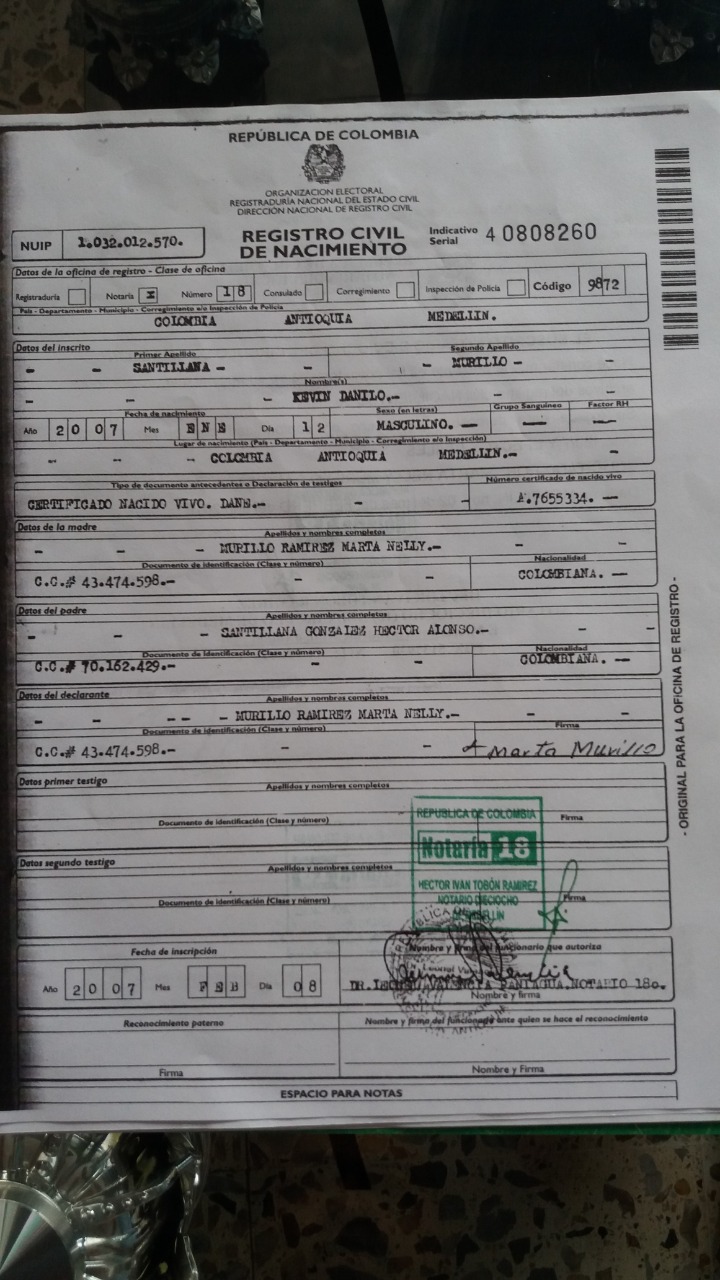 REPÚBLICA DE COLOMBIA
ORGANIZACION ELECTORAL
REGISTRADURÍA NACIONAL DEL ESTADO CIVIL
DIRECCIÓN NACIONAL DE REGISTRO CIVIL
NUIP 1.032.012.570.
REGISTRO CIVIL DE NACIMIENTO
Indicativo Serial 40808260
Datos de la oficina de registro - Clase de oficina
Registraduría Notaría X Número 18 Consulado Corregimiento Inspección de Policía Código 9872
País - Departamento - Municipio - Corregimiento e/o Inspección de Policía
COLOMBIA ANTIOQUIA MEDELLIN.
Datos del inscrito
Primer Apellido Segundo Apellido
- - SANTILLANA - - MURILLO - -
Nombre(s)
- - - KEVIN DANILO.- - -
Fecha de nacimiento Sexo (en letras) Grupo Sanguíneo Factor RH
Año 2007 Mes ENE Día 12 MASCULINO. - - -
Lugar de nacimiento (País - Departamento - Municipio - Corregimiento e/o Inspección)
- - - COLOMBIA ANTIOQUIA MEDELLIN.- -
Tipo de documento antecedentes o Declaración de testigos Número certificado de nacido vivo
CERTIFICADO NACIDO VIVO. DANE.- - - A.7655334. -
Datos de la madre
Apellidos y nombres completos
- - - MURILLO RAMIREZ MARTA NELLY.- - -
Documento de Identificación (Clase y número) Nacionalidad
C.C.# 43.474.598.- - - COLOMBIANA. -
Datos del padre
Apellidos y nombres completos
- - - SANTILLANA GONZALEZ HECTOR ALONSO.- - -
Documento de Identificación (Clase y número) Nacionalidad
C.C.# 70.162.429.- - - COLOMBIANA. -
Datos del declarante
Apellidos y nombres completos
- - - - - MURILLO RAMIREZ MARTA NELLY.- - -
Documento de Identificación (Clase y número) Firma
C.C.# 43.474.598.- - - Marta Murillo
Datos primer testigo
Apellidos y nombres completos
Documento de Identificación (Clase y número) Firma
Datos segundo testigo
Apellidos y nombres completos
Documento de Identificación (Clase y número) Firma
REPUBLICA DE COLOMBIA
Notaría 18
HECTOR IVAN TOBÓN RAMIREZ
NOTARIO DIECIOCHO
MEDELLIN
Fecha de inscripción
Nombre y firma del funcionario que autoriza
Año 2007 Mes FEB Día 08
DR. VALENCIA PANIAGUA, NOTARIO 18o.
Nombre y firma
Reconocimiento paterno
Nombre y firma del funcionario ante quien se hace el reconocimiento
Firma
Nombre y Firma
ESPACIO PARA NOTAS
- ORIGINAL PARA LA OFICINA DE REGISTRO -